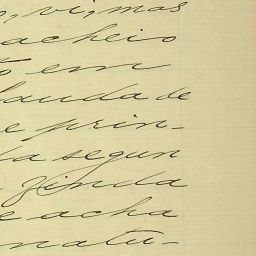 vi, mas
acheio
em
banda de
e prin-
ta segun
finda
e acha
natu-